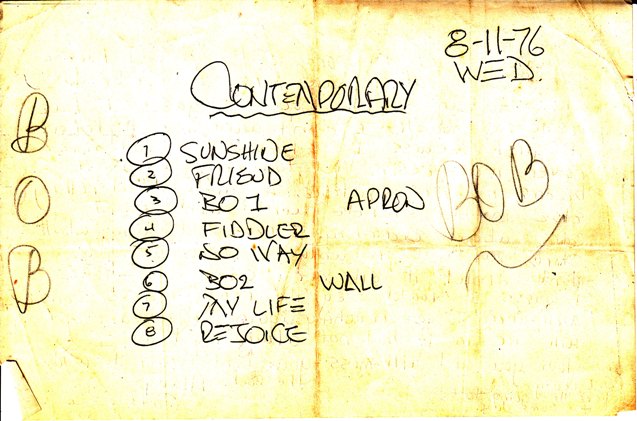 8-11-76
WED.
CONTEMPORARY
1 SUNSHINE
2 FRIEND
3 BO 1 APRON
4 FIDDLER
5 NO WAY
6 BO2 WALL
7 MY LIFE
8 REJOICE
BOB
BOB